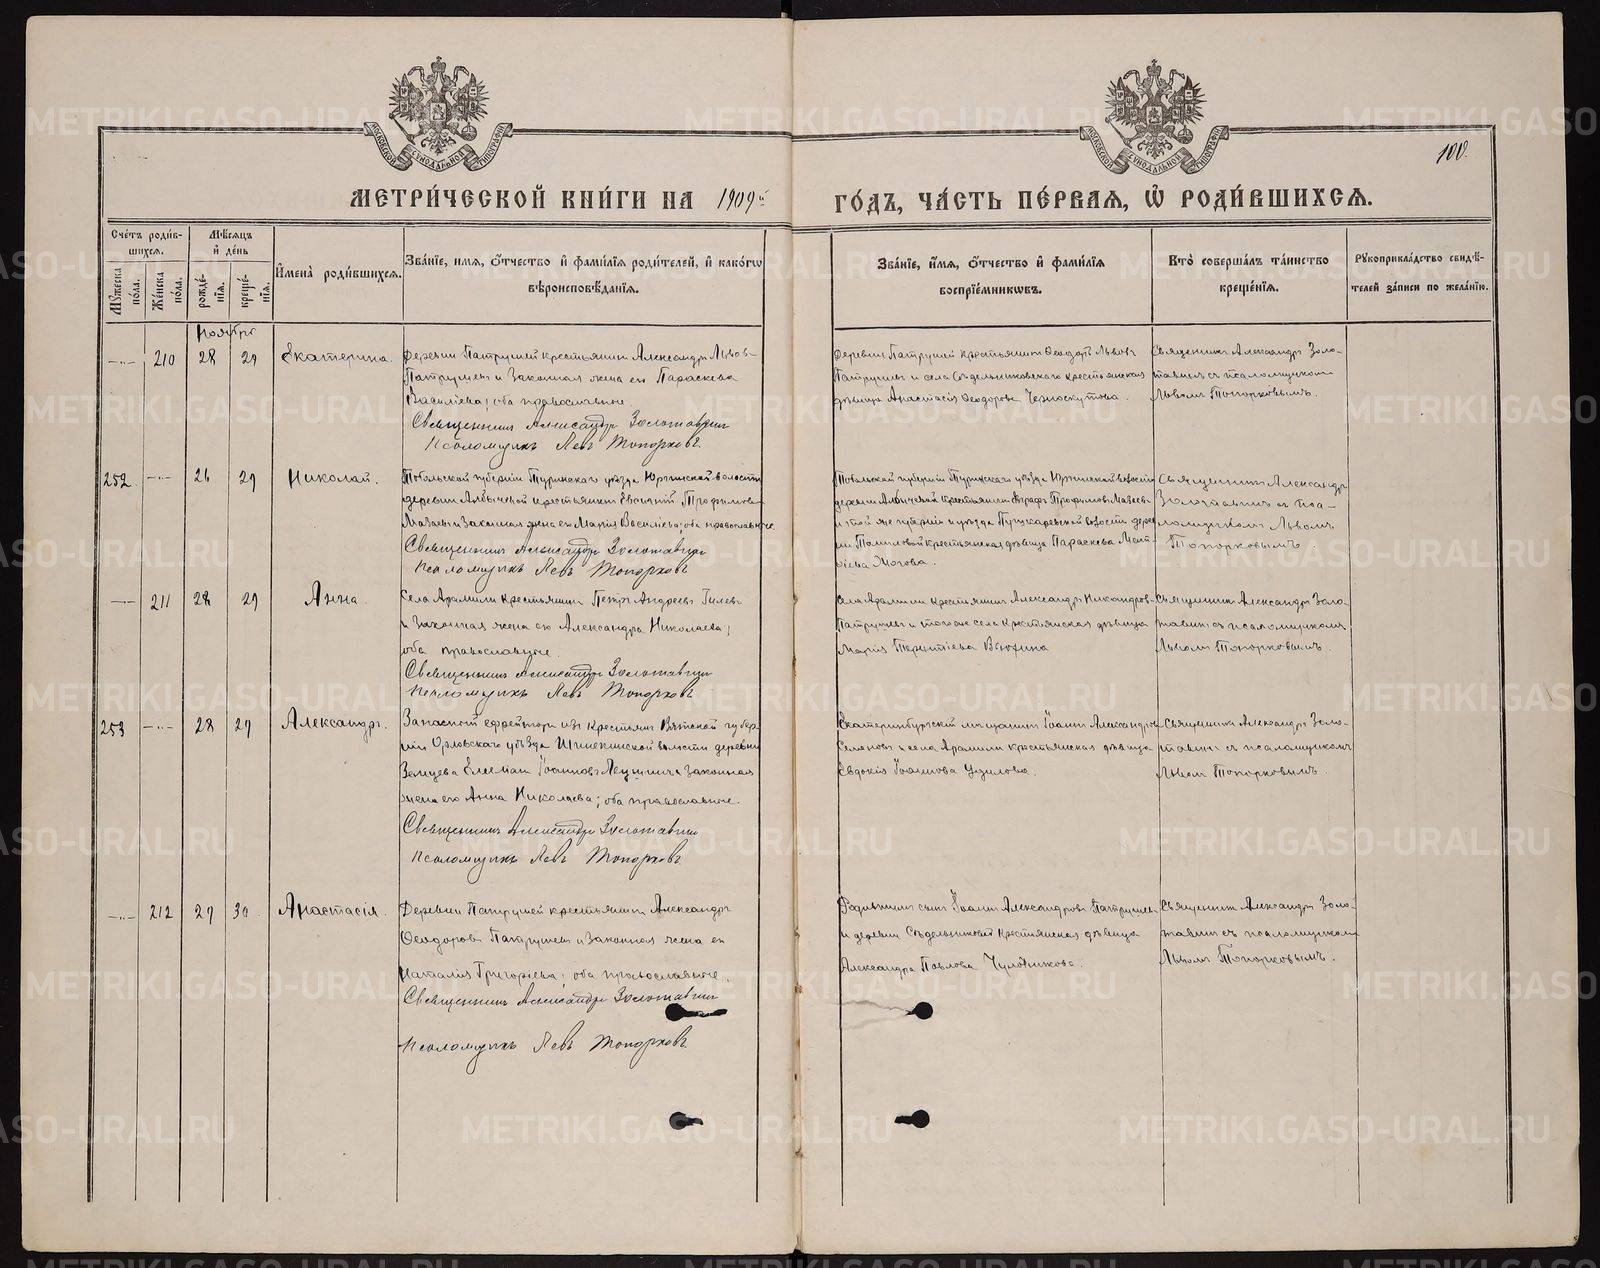 МОСКОВСКОЙ СѴНОДАЛЬНОЙ ТИПОГРАФІИ
МОСКОВСКОЙ СѴНОДАЛЬНОЙ ТИПОГРАФІИ
100.
МЕТРИ́ЧЕСКОЙ КНИ́ГИ НА 1909й
ГО́ДЪ, ЧА́СТЬ ПЕ́РВАЯ, Ѡ РОДИ́ВШИХСЯ.
Сче́тъ роди́вшихся.
Мꙋ́жеска по́ла.
Же́нска по́ла.
Мѣ́сяцъ и де́нь
рожде́нїя.
креще́нїя.
Имена̀ роди́вшихся.
Зва́нїе, имя, о́тчество и фами́лїя роди́телей, и како́гѡ вѣроисповѣ́данїя.
Зва́нїе, и́мя, о́тчество и фами́лїя воспрїе́мникѡвъ.
Кто̀ соверша́лъ та́инство креще́нїя.
Рꙋкоприкла́дство свидѣ́телей за́писи по жела́нїю.
Ноябрь
210 28 29 Екатерина.
Деревни Патрушей крестьянинъ Александръ Львовъ
Патрушевъ и законная жена его Параскева
Василіева; оба православные.
Священникъ Александръ Золотавинъ
Псаломщикъ Левъ Топорковъ.
Деревни Патрушей крестьянинъ Ѳеодоръ Львовъ
Патрушевъ и села Сѣдельниковскаго крестьянская
дѣвица Анастасія Ѳеодорова Черноскутова.
Священникъ Александръ Золо-
тавинъ съ псаломщикомъ
Львомъ Топорковымъ.
252 26 29 Николай.
Тобольской губерніи Туринскаго уѣзда волости
деревни крестьянинъ Трофимовъ
и законная жена его Марія Василіева; оба православные.
Священникъ Александръ Золотавинъ
Псаломщикъ Левъ Топорковъ
Тобольской губерніи Туринскаго уѣзда волости
деревни крестьянинъ Трофимовъ
и той же губерніи и уѣзда Пушкаревской волости дерев-
ни Томиловой крестьянская дѣвица Параскева
Священникъ Александръ
Золотавинъ съ пса-
ломщикомъ Львомъ
Топорковымъ.
211 28 29 Анна.
Села Арамили крестьянинъ Петръ Андреевъ Гилевъ
и законная жена его Александра Николаева;
оба православные.
Священникъ Александръ Золотавинъ
Псаломщикъ Левъ Топорковъ
Села Арамили крестьянинъ Александръ Никандровъ
Патрушевъ и того же села крестьянская дѣвица
Марія Терентіева
Священникъ Александръ Золо-
тавинъ съ псаломщикомъ
Львомъ Топорковымъ.
253 28 29 Александръ.
Запасной ефрейторъ изъ крестьянъ Вятской губер-
ніи Орловскаго уѣзда волости деревни
Іоанновъ законная
жена его Анна Николаева; оба православные.
Священникъ Александръ Золотавинъ
Псаломщикъ Левъ Топорковъ
Екатеринбургскій мѣщанинъ Іоаннъ Александровъ
и села Арамили крестьянская дѣвица
Евдокія Іоаннова
Священникъ Александръ Золо-
тавинъ съ псаломщикомъ
Львомъ Топорковымъ.
212 29 30 Анастасія.
Деревни Патрушей крестьянинъ Александръ
Ѳеодоровъ Патрушевъ и законная жена его
Наталія Григоріева; оба православные.
Священникъ Александръ Золотавинъ
Псаломщикъ Левъ Топорковъ.
сынъ Іоаннъ Александровъ Патрушевъ
и деревни крестьянская дѣвица
Александра Павлова
Священникъ Александръ Золо-
тавинъ съ псаломщикомъ
Львомъ Топорковымъ.
METRIKI.GASO-URAL.RU